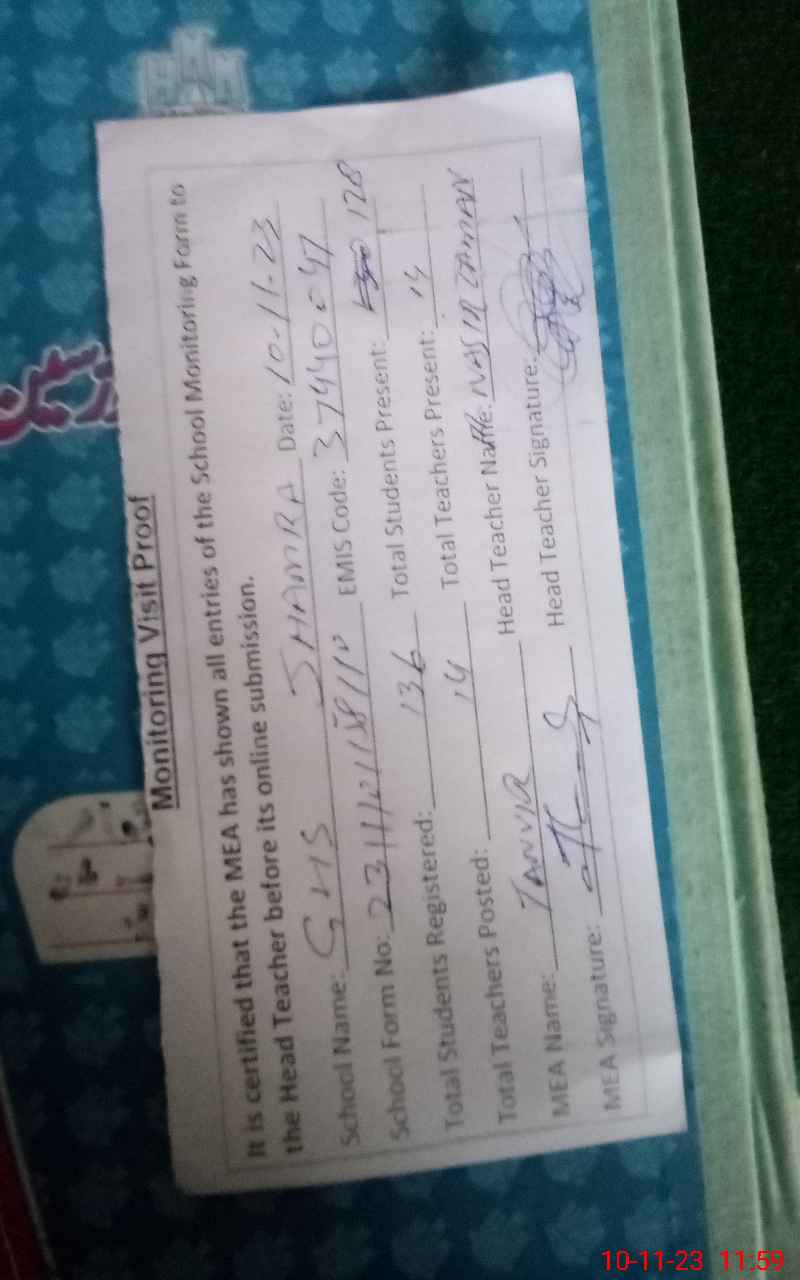 Monitoring Visit Proof
It is certified that the MEA has shown all entries of the School Monitoring Form to
the Head Teacher before its online submission.
School Name: GHS SHAMRA Date: 10-11-23
School Form No: EMIS Code: 37440047
Total Students Registered: 136 Total Students Present: 128
Total Teachers Posted: 14 Total Teachers Present: 14
MEA Name: TANVIR Head Teacher Name: NASIR ZAMAN
MEA Signature: Head Teacher Signature:
10-11-23 11:59